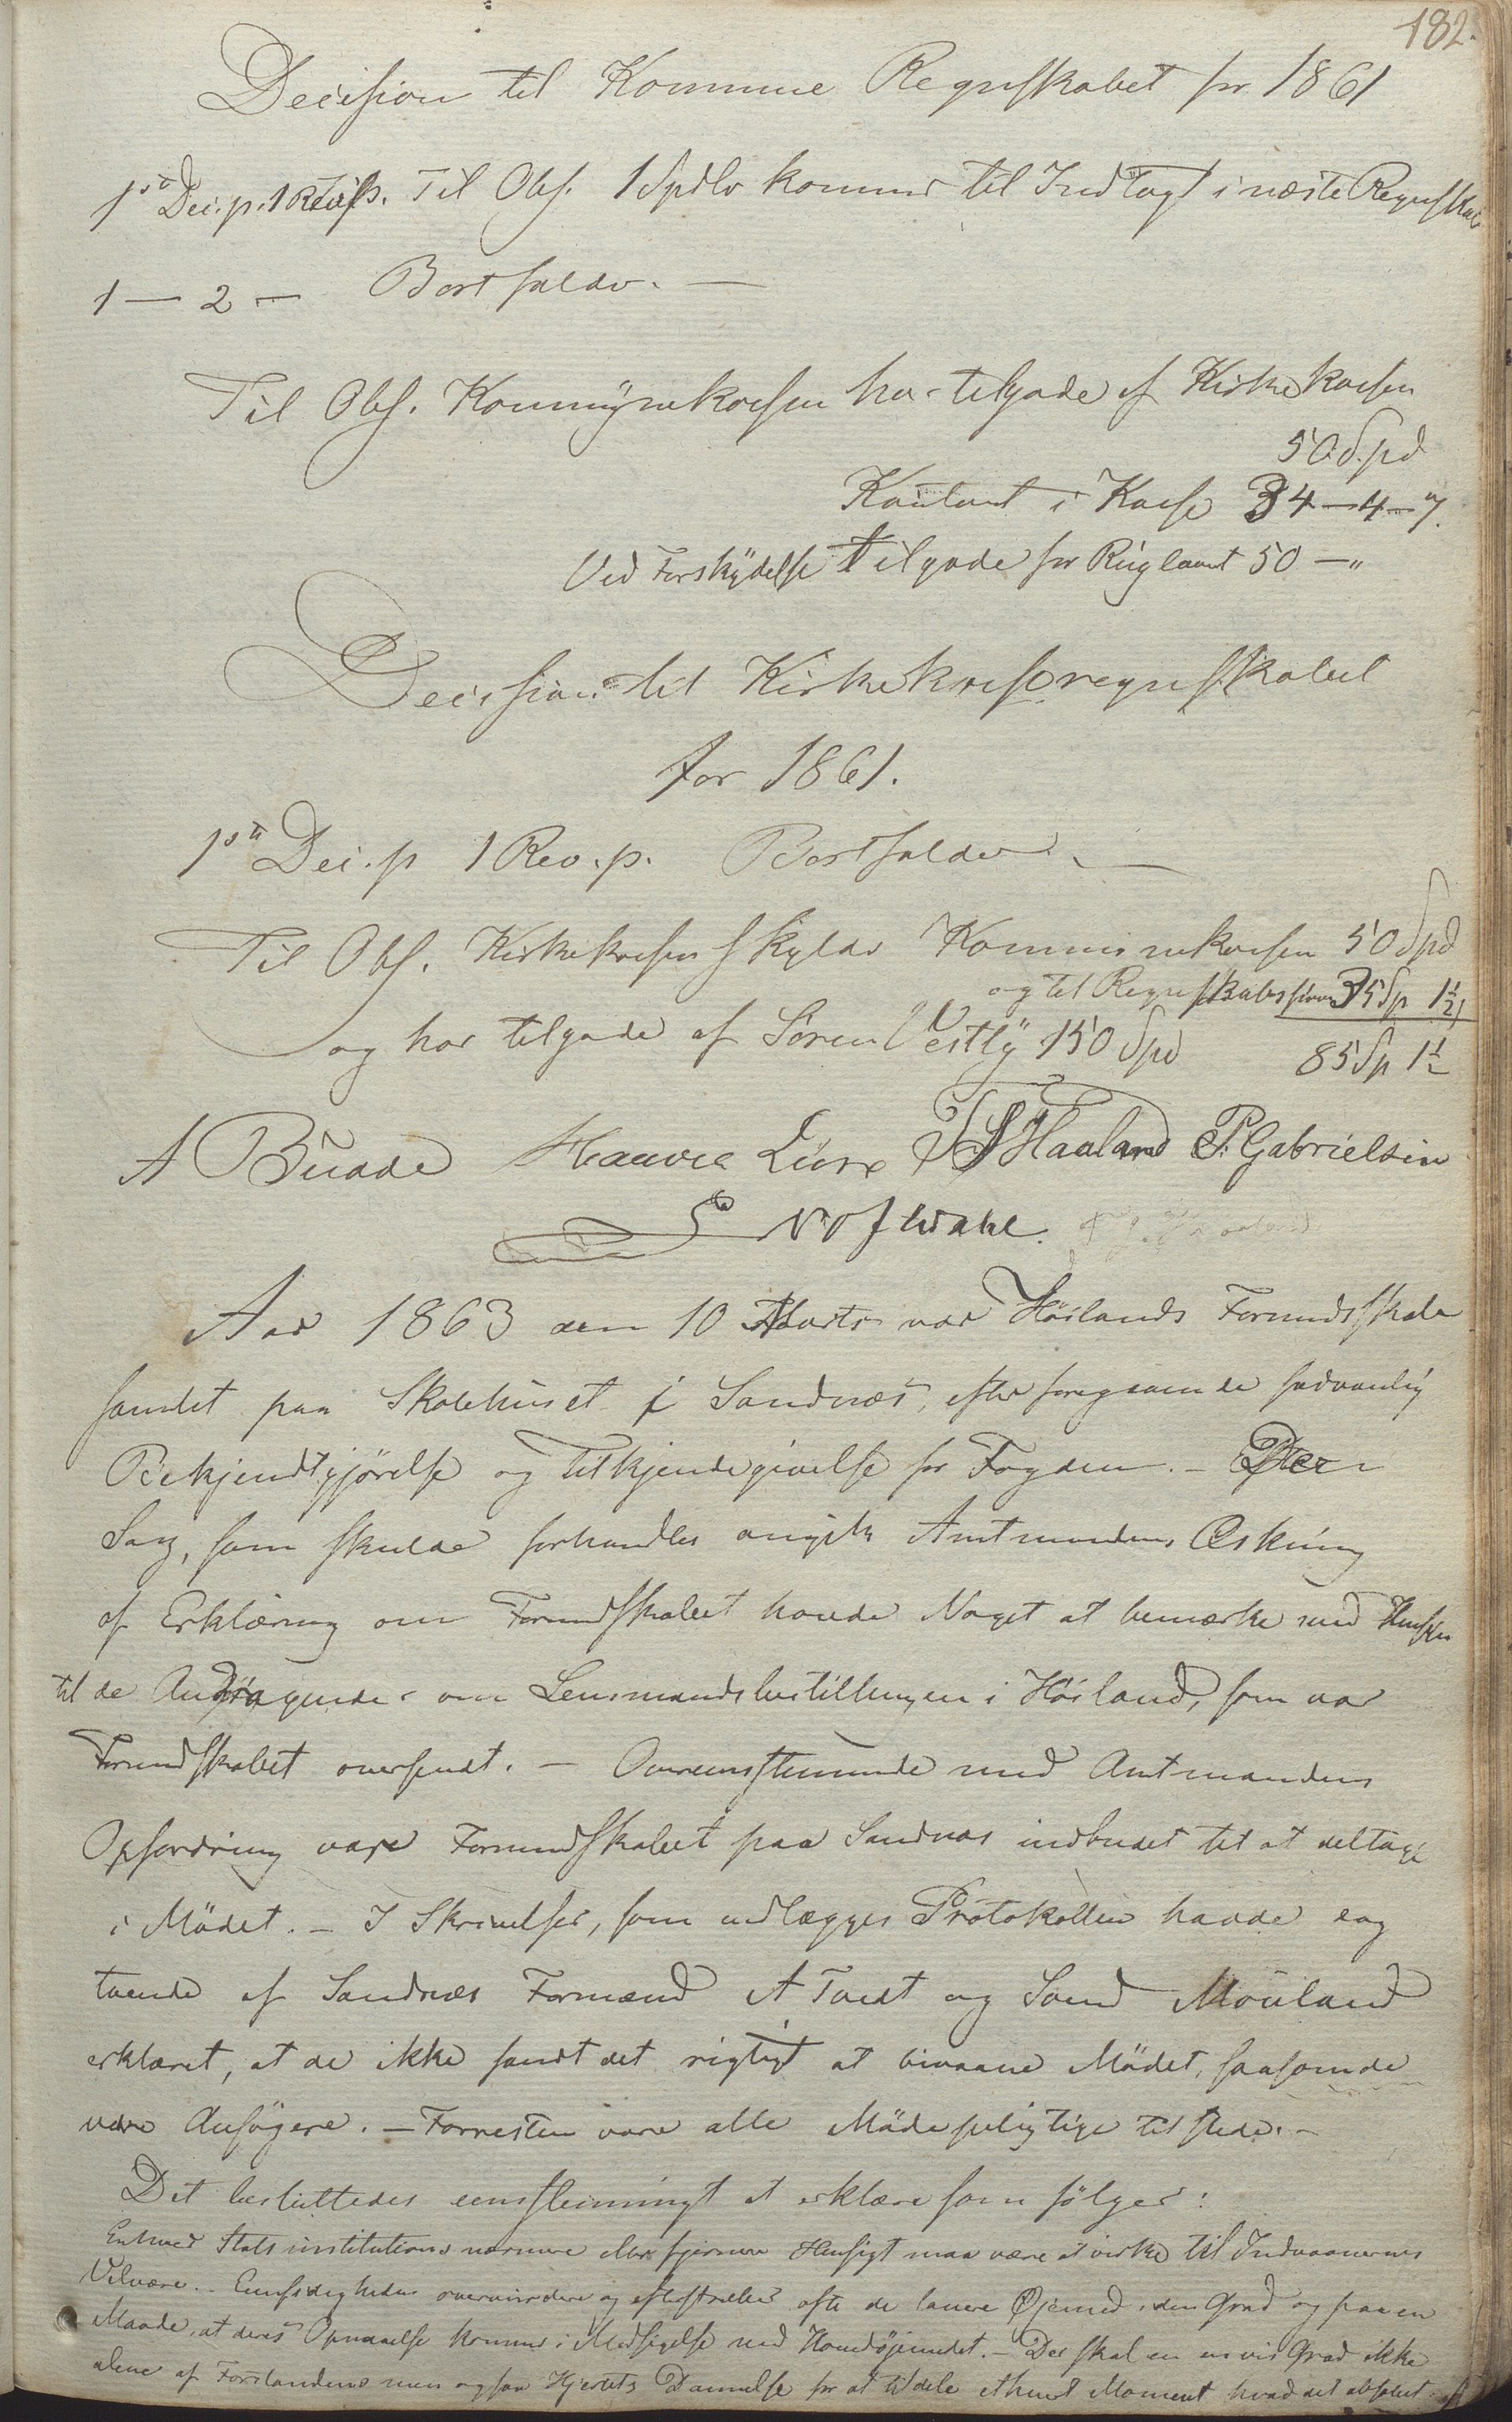 182.
Decision til Kommune Regnskabet for 1861
1ste Dec. p. 1 Til Obs. 1 Spdlr kommer til Indtægt i næste Regnskab
1 — 2 — Bortfalder. —
Til Obs. Kommunekassen har tilgode af Kirkekassen
50 Spd
Kontant i Kasse 34—4—7.
Ved Forskydelse Tilgode for 50 — "
Decision til Kirkekasseregnskabet
for 1861.
1ste Dec. p 1 Rev. p. Bortfalder. —
Til Obs. Kirkekassen skylder Kommunekassen 50 Spd
og til Regnskabsføreren 35 Sp 1½
og har tilgode af Sören Vestly 150 Spd 85 Sp 1½
A Budde Haaver Lura Haaland P. Gabrielsen
Aar 1863 den 10 Marts var Höilands Formandskab
samlet paa Skolehuset i Sandnæs, efter foregaaende sædvanlig
Bekjendtgjörelse og Tilkjendegivelse for Fogden. — Den
Sag, som skulde forhandles angik Amtmandens Æskning
af Erklæring om Formandskabet havde Noget at bemærke med Hensyn
til de Andragender om Lensmandsbestillingen i Höiland, som var
Formandskabet oversendt. — Overensstemmende med Amtmandens
Opfordring var Formandskabet paa Sandnæs indbudet til at deltage
i Mödet. — I Skrivelser, som vedlægges Protokollen havde og
tvende af Sandnæs Formænd A Tvedt og Svend Möuland
erklæret, at de ikke fandt det rigtigt at bivaane Mödet, saasom de
vare Ansögere. — Forresten vare alle Mödepligtige tilstede. —
Det besluttedes eenstemmigt at erklære som fölger:
Enhver Statsinstitutions nærmere eller fjernere Hensigt maa være at virke til Indvaanernes
Velvære. — Eensidigheden overvurderer og efterstræber ofte de lavere Öjemed i den Grad og paa en
Maade, at deres Opnaaelse kommer i Modsigelse med Hovedöjemedet. — Der skal en en vis Grad ikke
alene af Forstandens men ogsaa Hjertets Dannelse for at tildele ethvert Moment hvad det absolut